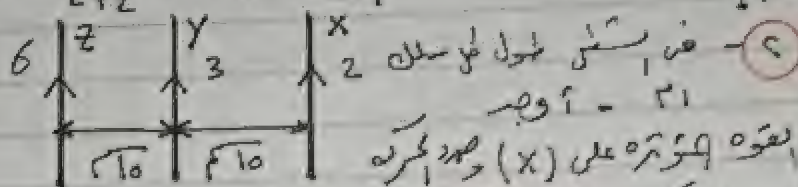 ٢- في الشكل طول كل سلك
٣١ - أوجد
القوة المؤثرة على (X) وحدد الحركة
6 Z Y 3 X 2
١٥سم ١٥سم